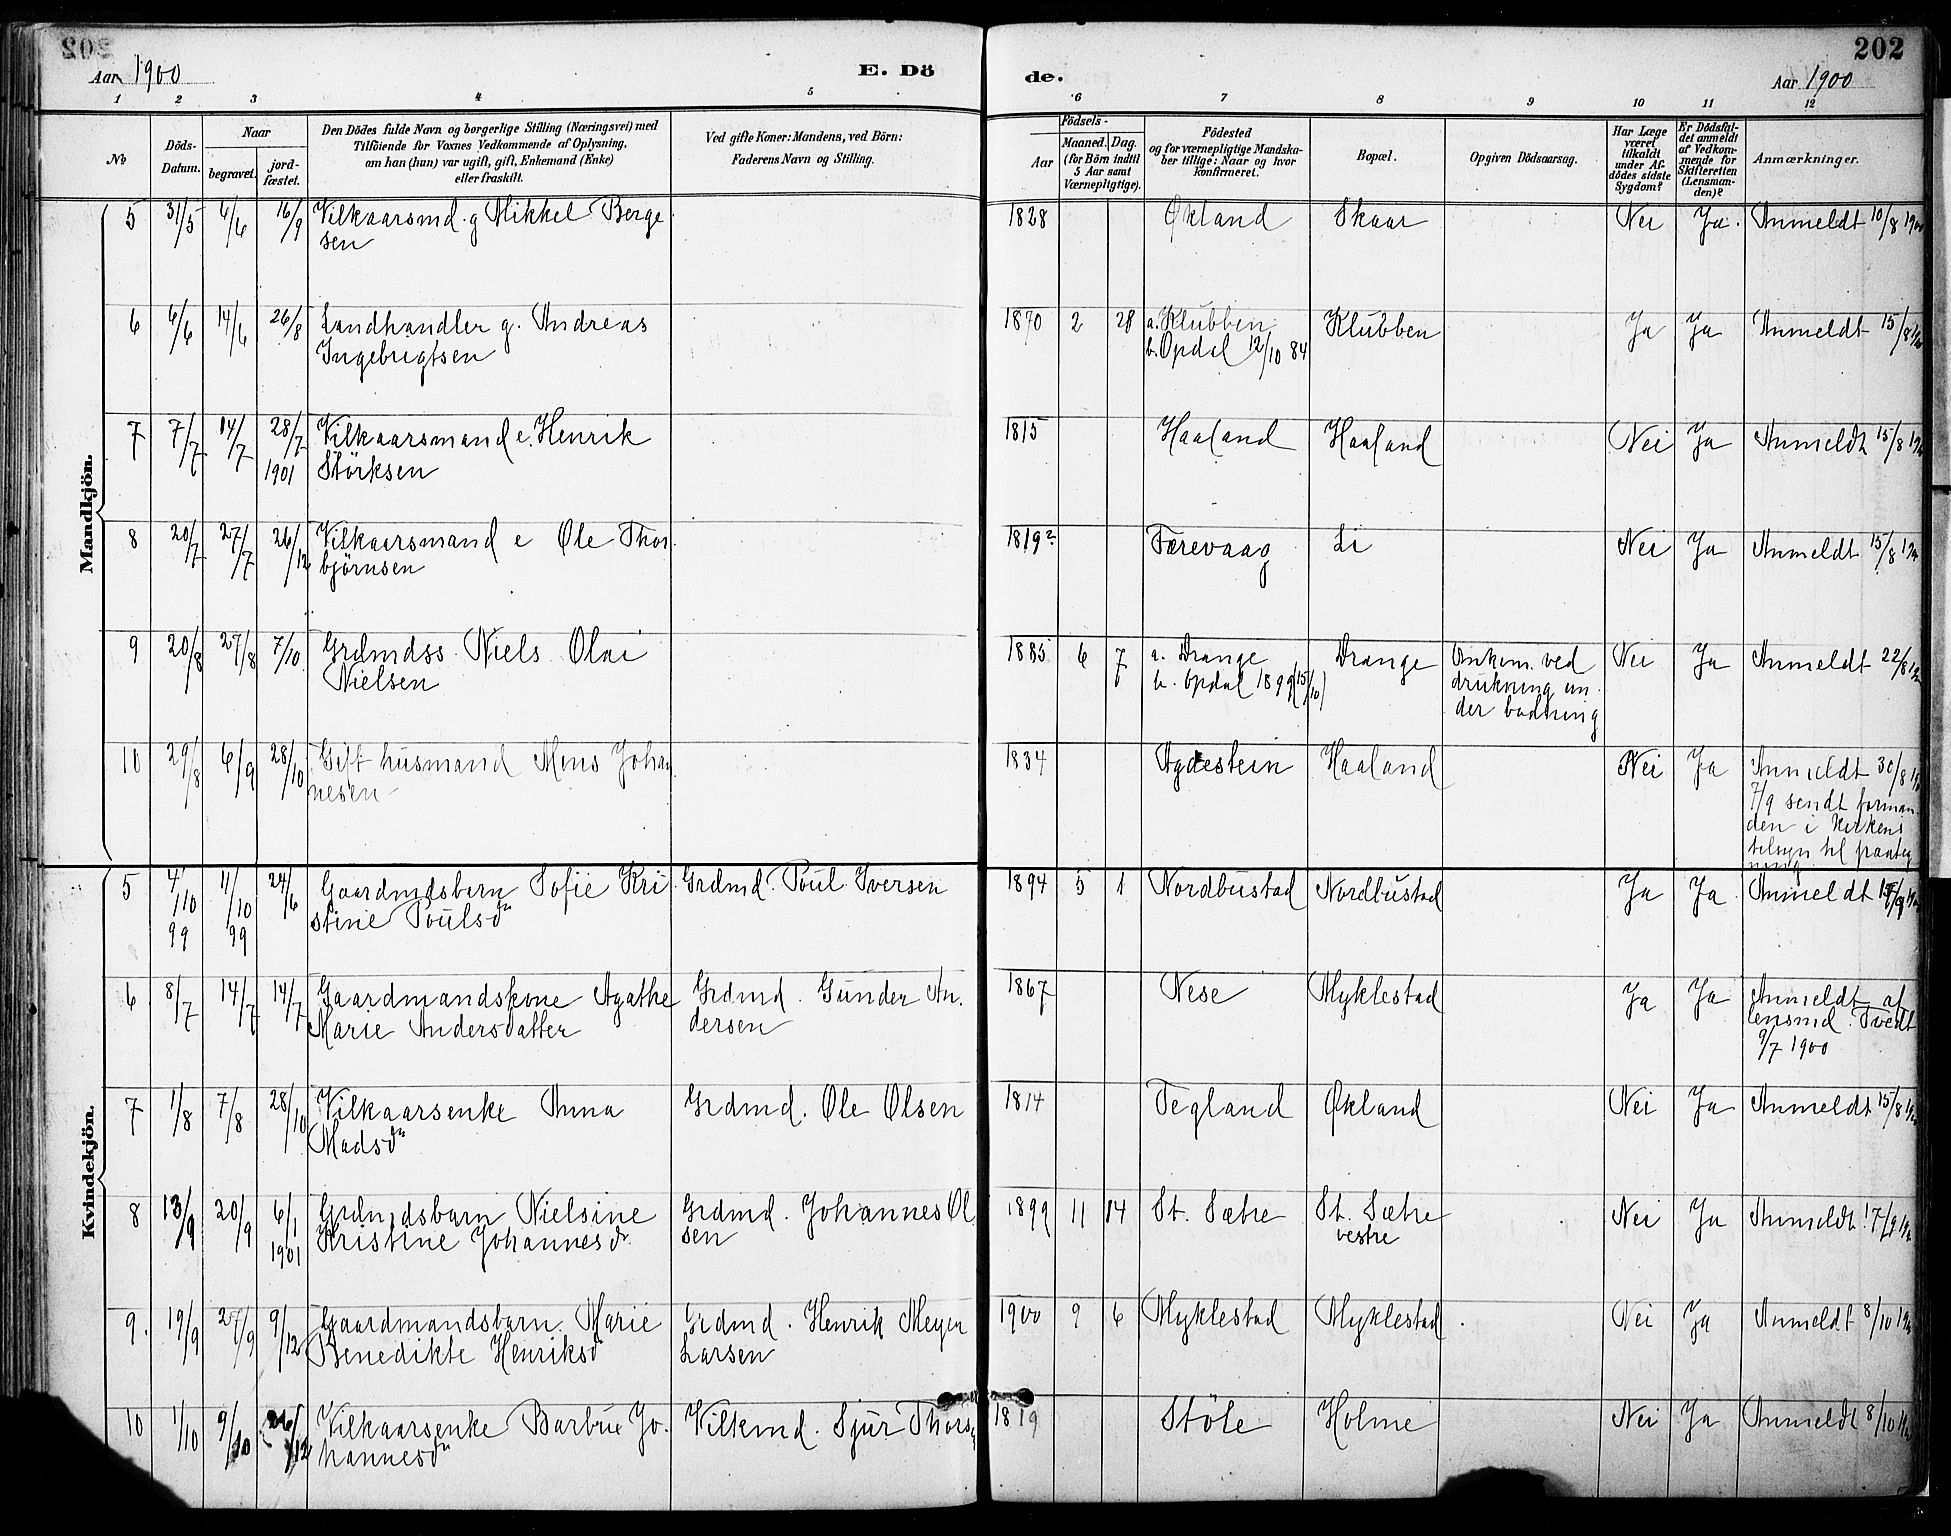 202
Aar 1900
E. Dö
de.
202
Aar 1900
1 2 3 4 5 6 7 8 9 10 11 12
No
Döds-Datum.
Naar
begravet.
jord-fæstet.
Den Dödes fulde Navn og borgerlige Stilling (Næringsvei) med
Tilföiende for Voxnes Vedkommende af Oplysning,
om han (hun) var ugift, gift, Enkemand (Enke)
eller fraskilt.
Ved gifte Koner: Mandens, ved Börn:
Faderens Navn og Stilling.
Födsels-
Aar
Maaned. Dag.
(for Börn indtil
5 Aar samt
Værnepligtige).
Födested
og for værnepligtige Mandska-
ber tillige: Naar og hvor
konfirmeret.
Bopæl.
Opgiven Dödsaarsag.
Har Læge
været
tilkaldt
under Af-
dödes sidste
Sygdom?
Er Dödsfal-
det anmeldt
af Vedkom-
mende for
Skifteretten
(Lensman-
den)?
Anmærkninger.
Mandkjön.
5 31/5 6/6 16/9 Vilkaarsmd. g Mikkel Berge 1828 Økland Skaar Nei Ja. Anmeldt 10/8 1900
sen
6 6/6 14/6 26/8 Landhandler g. Andreas 1870 2 28 a. Klubben Klubben Ja Ja Anmeldt 15/8
Ingebrigtsen b. Opdal 12/10 84
7 7/7 14/7 28/7 Vilkaarsmand e. Henrik 1815 Haaland Haaland Nei Ja Anmeldt 15/8
1901 Störksen
8 20/7 27/7 26/12 Vilkaarsmand e Ole Thor 1819? Færevaag Li Nei Ja Anmeldt 15/8
björnsen
9 20/8 27/8 7/10 Grdmdss. Niels Olai 1885 6 7 a. Drange Drange Omkom. ved Nei Ja Anmeldt 22/8
Nielsen b. Opdal 1899 (15/10) drukning un
der badning
10 29/8 6/9 28/10 Gift husmand Mons Johan 1834 Agdestein Haaland Nei Ja Anmeldt 30/8
nesen 7/9 sendt forman
den i Kirkens
tilsyn til paateg
ning
Kvindekjön.
5 4/10 11/10 24/6 Gaardmdsbarn Sofie Kri Grdmd. Poul Iversen 1894 5 1 Nordbustad Nordbustad Ja Ja Anmeldt
99 99 stine Poulsdr
6 8/7 14/7 14/7 Gaardmandskone Agathe Grdmd. Gunder An. 1867 Nese Myklestad Ja Ja Anmeldt af
Marie Andersdatter dersen lensmd. Tvedt
9/7 1900
7 1/8 7/8 28/10 Vilkaarsenke Anna Grdmd. Ole Olsen 1814 Tegland Økland Nei Ja Anmeldt 15/8
Madsdr
8 13/9 20/9 6/1 Grdmdsbarn Nielsine Grdmd. Johannes Ol 1899 11 14 St. Sætre St. Sætre Nei Ja Anmeldt 17/9
1901 Kristine Johannesdr sen vestre
9. 19/9 27/9 9/12 Gaardmandsbarn Marie Grdmd. Henrik Meyer 1900 9 6 Myklestad Myklestad. Nei Ja Anmeldt 8/10
Benedikte Henriksdr Larsen
10 1/10 9/10 26/12 Vilkaarsenke Barbue Jo. Vilkmd. Sjur Thors 1819 Støle Holme Nei Ja Anmeldt 8/10
hannesdr